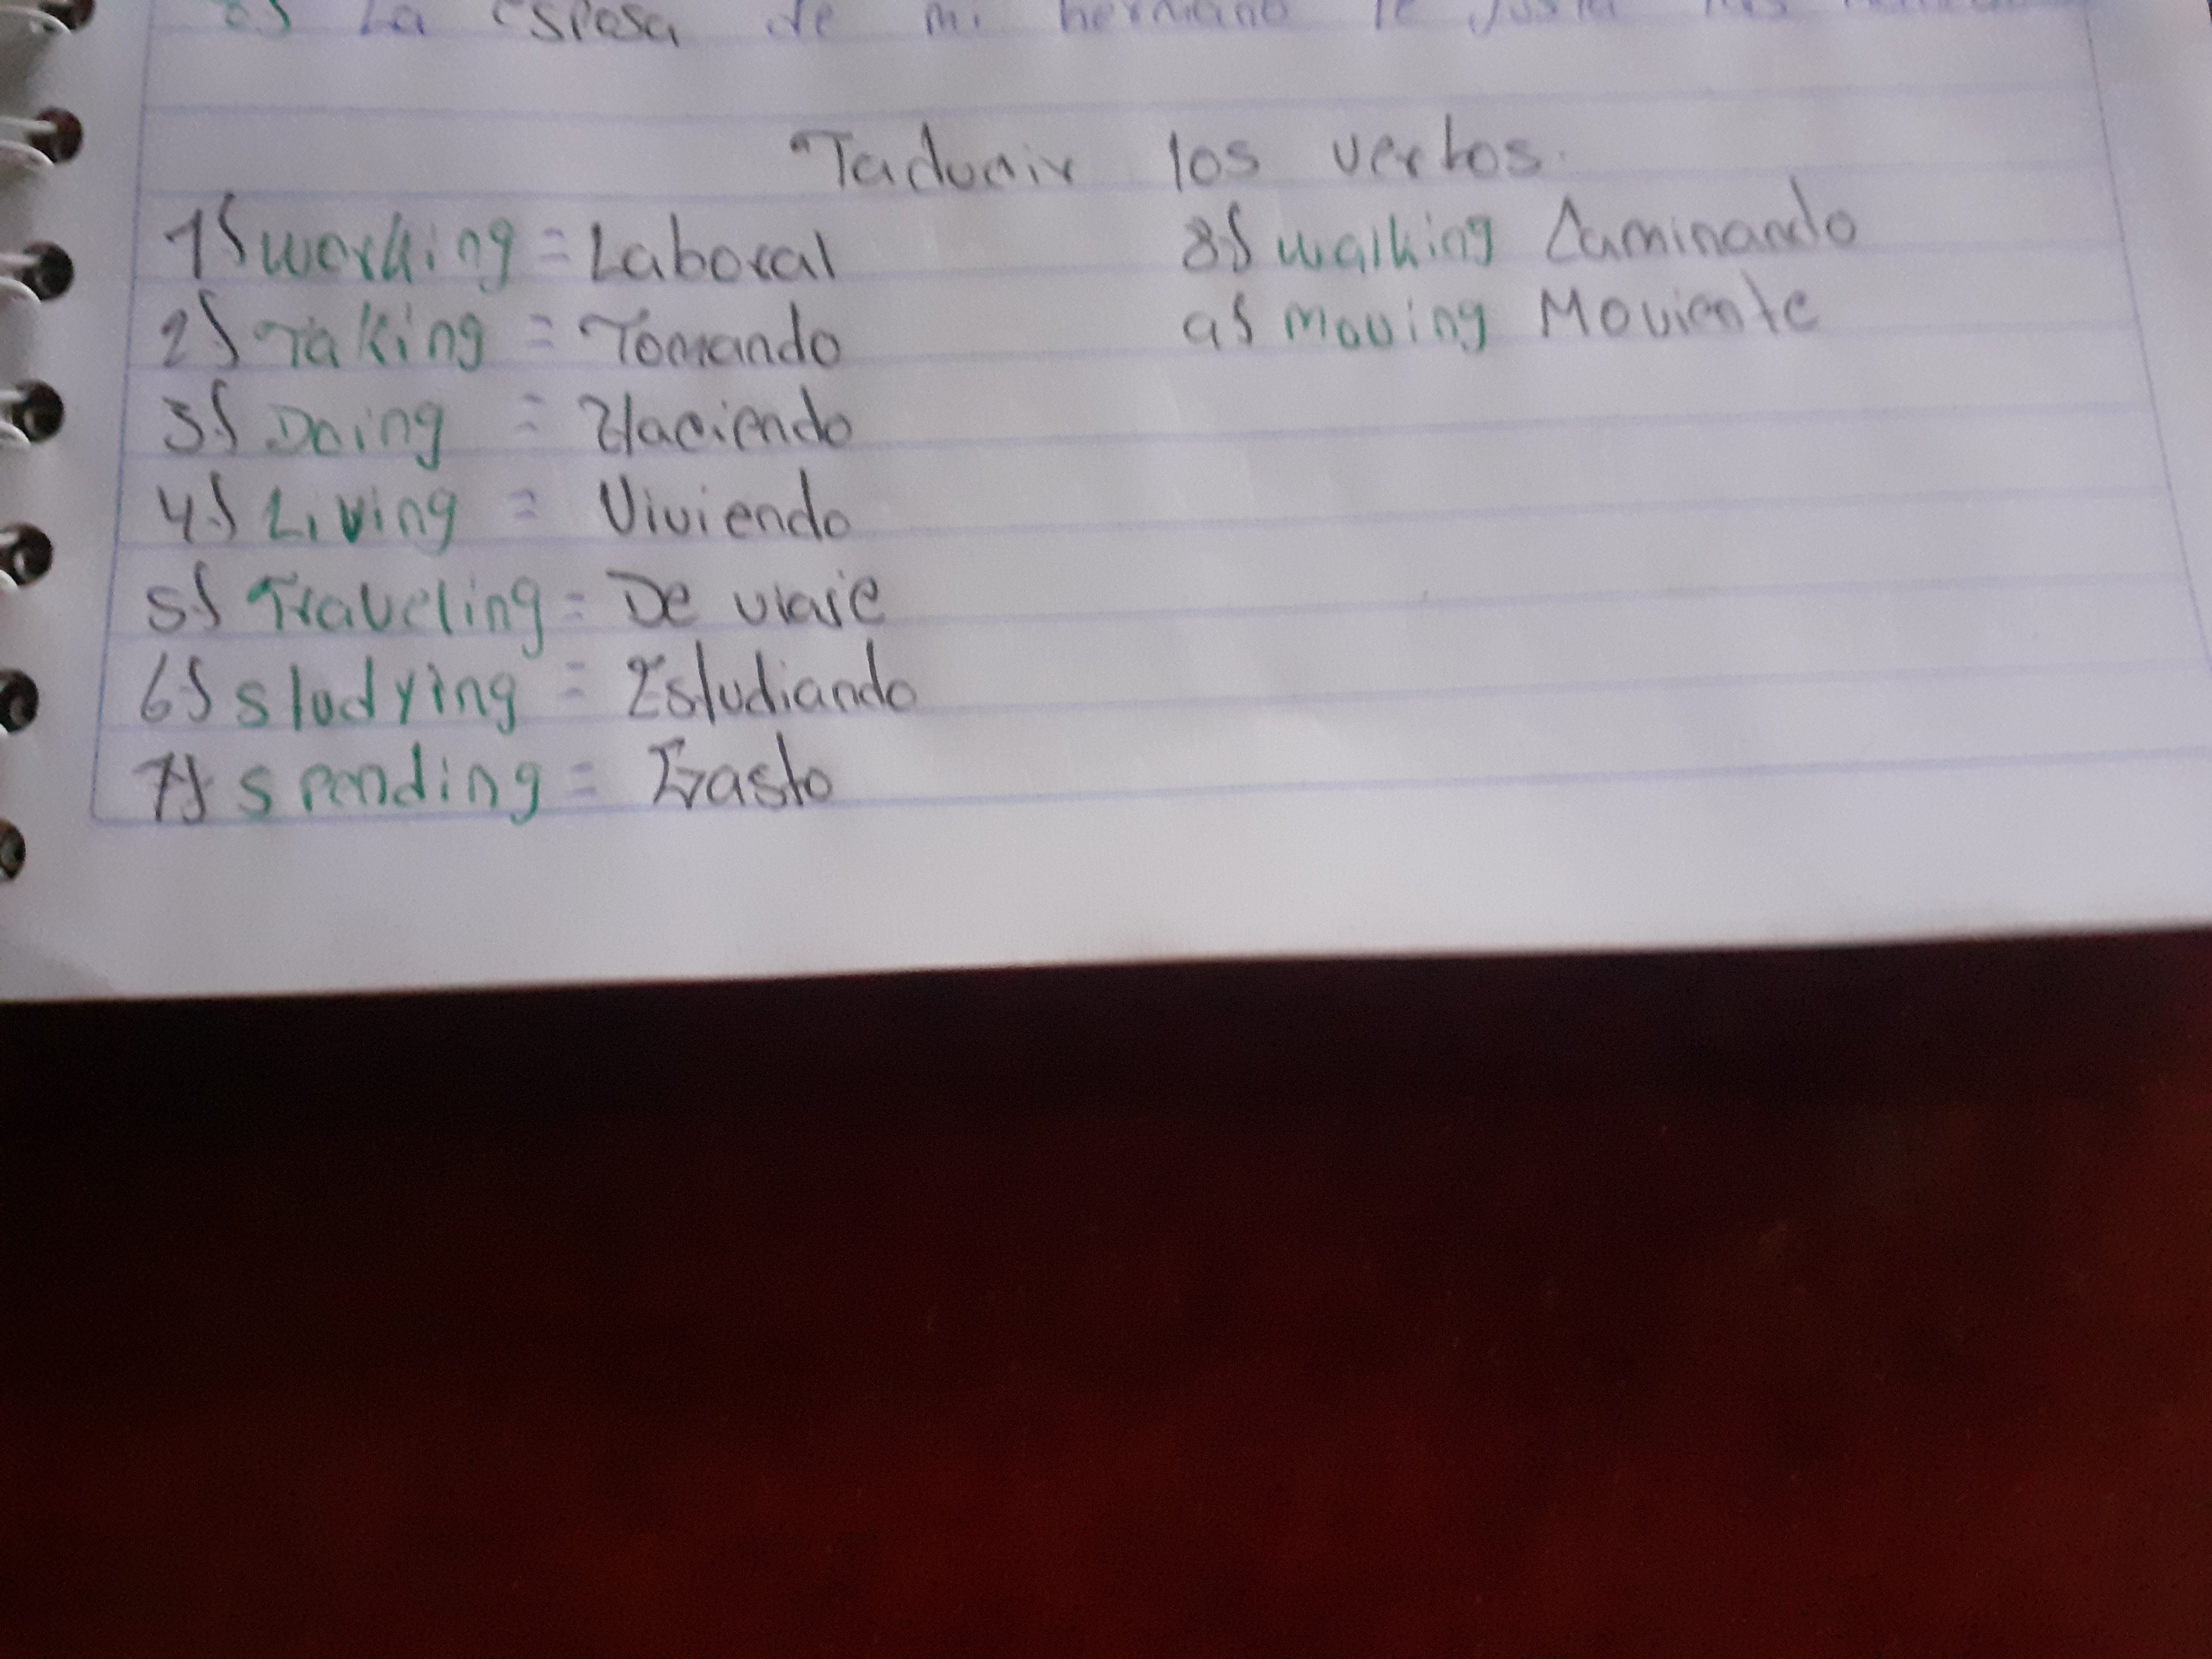 La esposa de mi hermano le
Taducir los verbos.
1) working = Laboral
2) Taking = Tomando
3) Doing = Haciendo
4) Living = Viviendo
5) Traveling = De viaje
6) studying = Estudiando
7) spending = Gasto
8) walking Caminando
9) moving Moviente